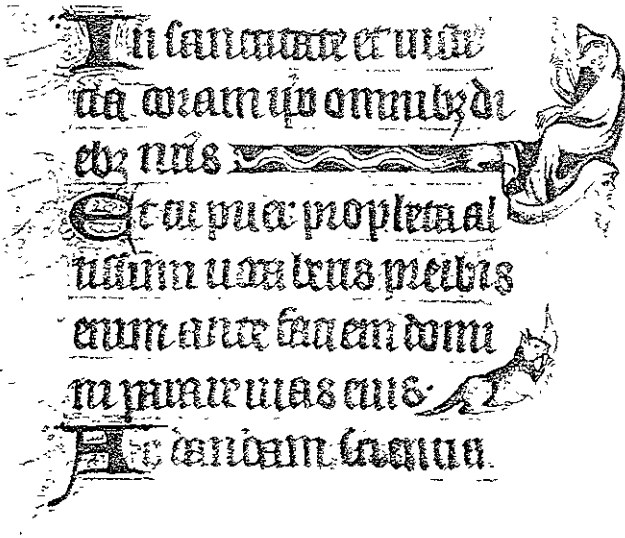 In sanctitate et iusti
cia coram ip̄o omnibꝫ di
ebꝫ nr̄is
Et tu puer propheta al
tissimi uocaberis preibis
enim ante faciem domi
ni parare uias eius·
Ad dandam scientia